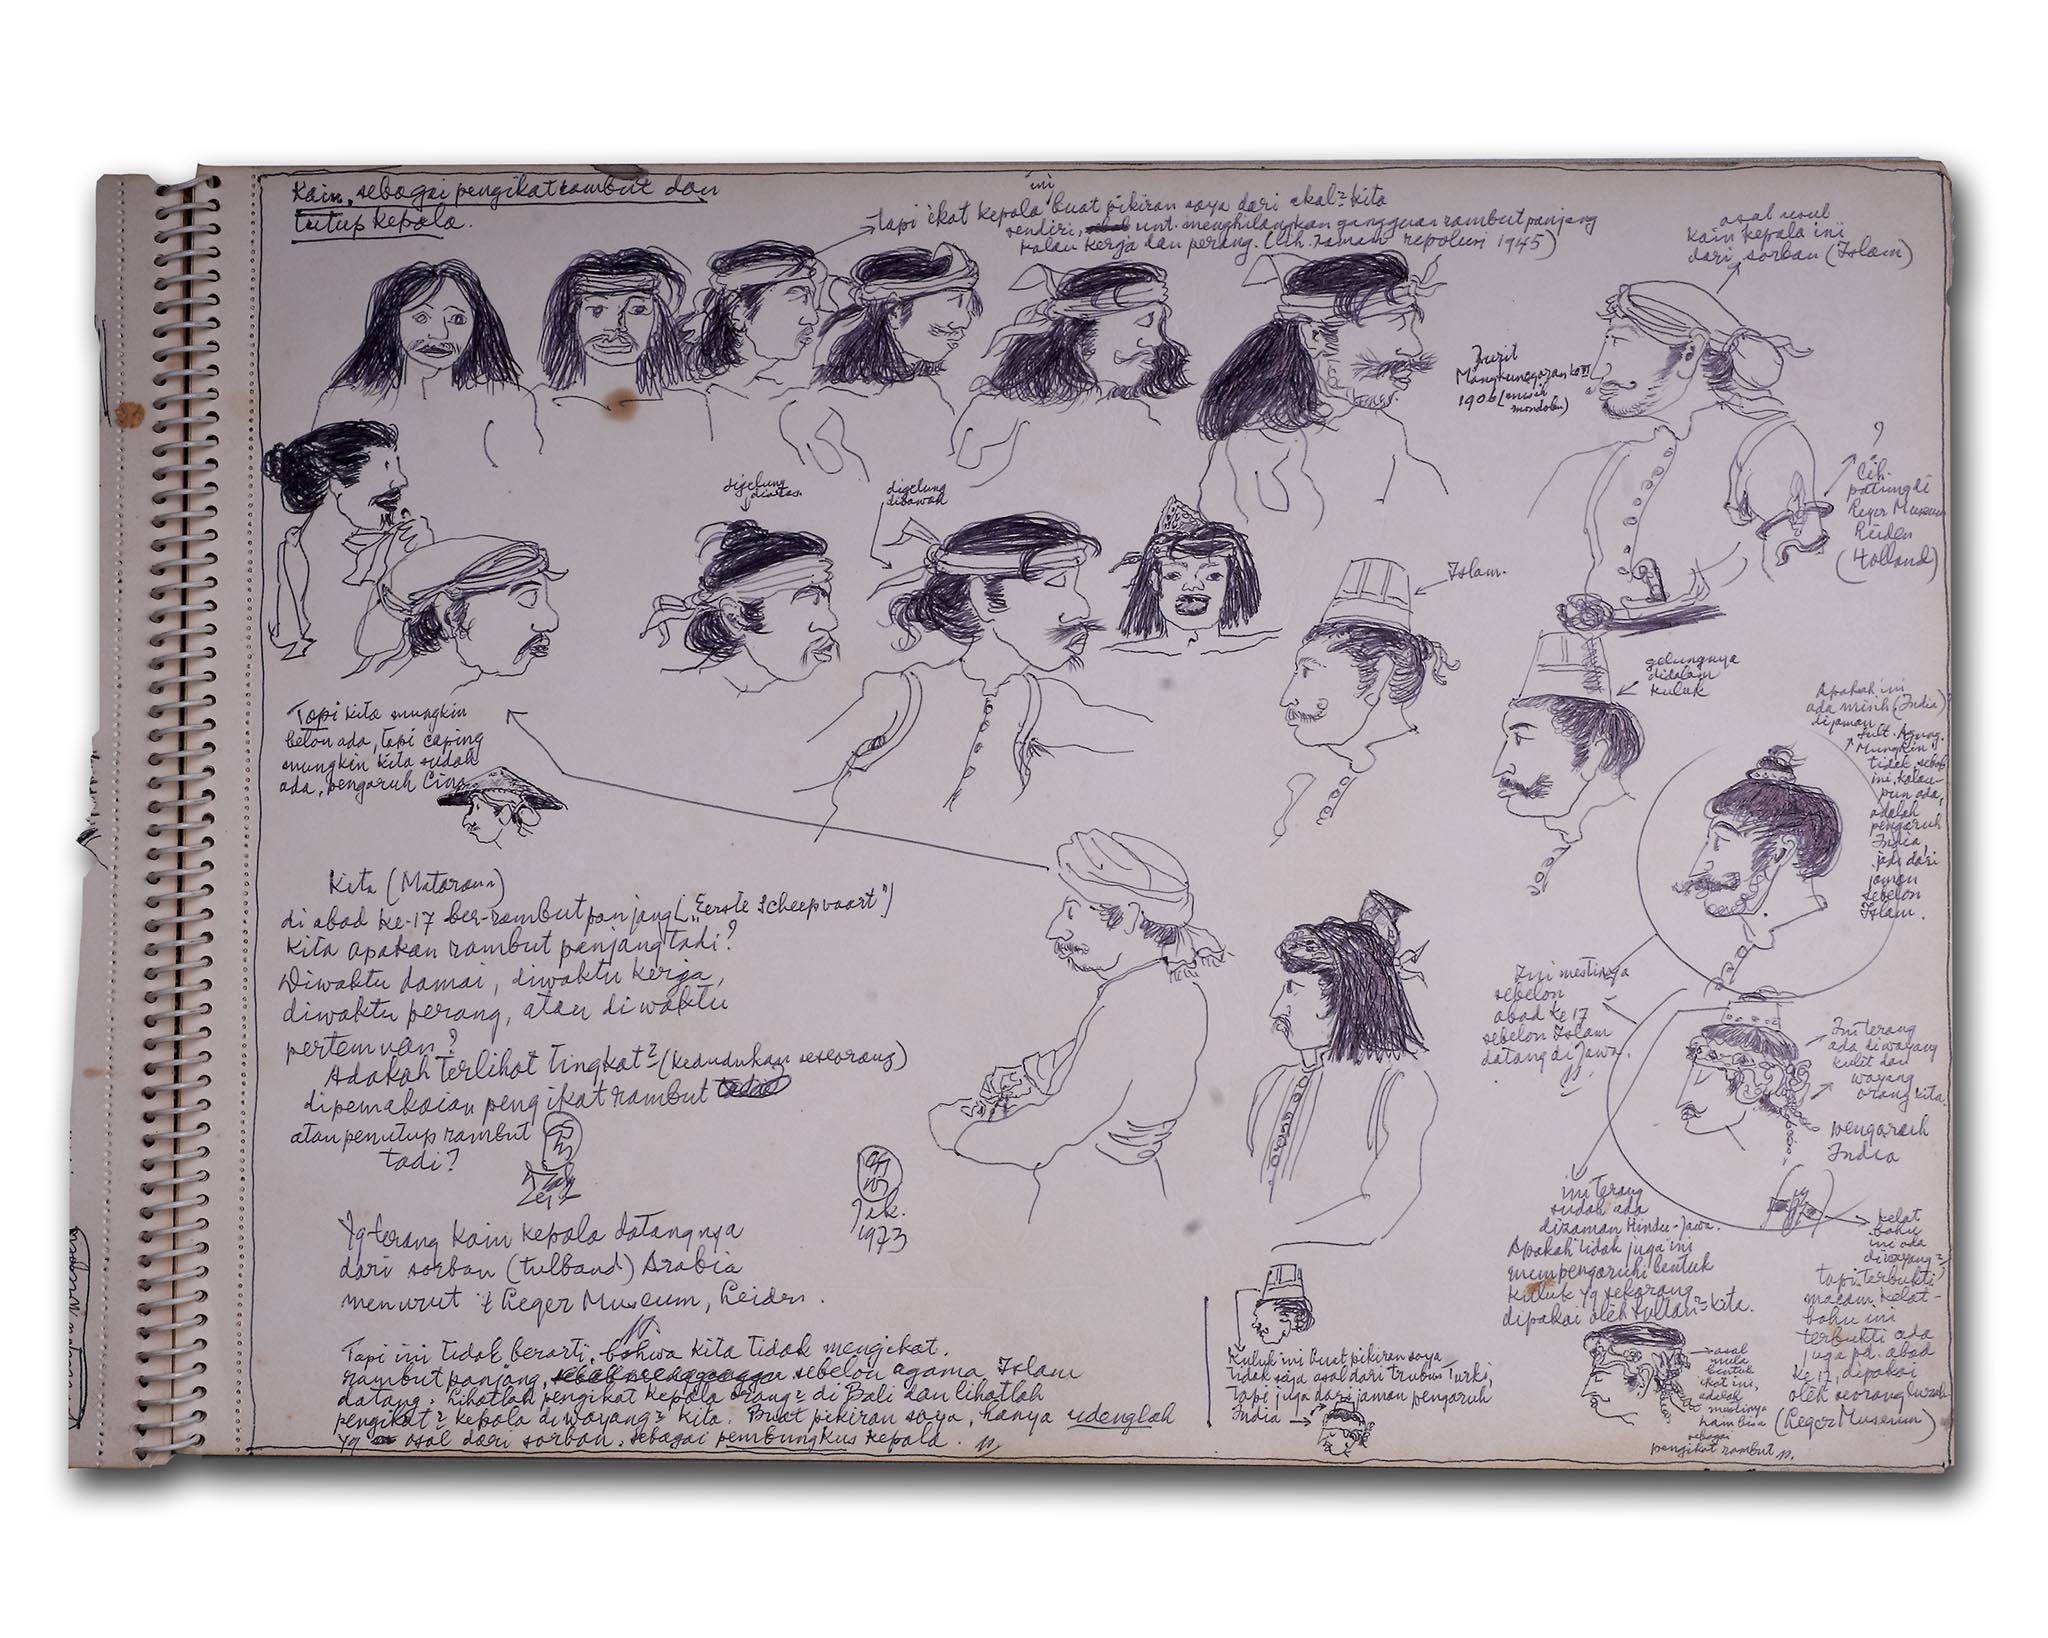 Kain, sebagai pengikat rambut dan
tutup kepala.
ini
tapi ikat kepala buat pikiran saya dari akal²kita
sendiri, unt. menghilangkan gangguan rambut panjang
kalau kerja dan perang. (lih. zaman repolusi 1945)
asal usul
kain kepala ini
dari sorban (Islam)
Mangkunegaran ke VI
1906
?
Lih.
patung di
Leger Museum
Leiden
(Holland)
digelung
diatas.
digelung
dibawah
Islam.
gelungnya
didalam
kuluk
Topi kita mungkin
belon ada, tapi caping
mungkin kita sudah
ada, pengaruh Cina
Apakah ini
ada misih (India)
dijaman
Sult. Agung.
Mungkin
tidak, sebab
ini, kalau-
pun ada,
adalah
pengaruh
India,
jadi dari
jaman
sebelon
Islam.
Kita (Mataram)
di abad ke-17 ber-rambut panjang („Eerste Scheepvaart")
Kita apakan rambut panjang tadi?
Diwaktu damai, diwaktu kerja,
diwaktu perang, atau diwaktu
pertemuan?
Adakah terlihat tingkat² (kedudukan seseorang)
dipemakaian pengikat rambut
atau penutup rambut
tadi?
Ini mestinya
sebelon
abad ke 17
sebelon Islam
datang di Jawa.
Ini terang
ada diwayang
kulit dan
wayang
orang kita.
pengaruh
India
Jak.
1973
Yg terang kain kepala datangnya
dari sorban (tulband) Arabia
menurut 't Leger Museum, Leiden.
ini terang
sudah ada
dizaman Hindu-Jawa.
Apakah tidak juga ini
mempengaruhi bentuk
kuluk yg sekarang
dipakai oleh sultan²kita.
kelat
bahu
ini ada
diwayang²
tapi terbukti
macam kelat-
bahu ini
terbukti ada
juga pd. abad
ke 17, dipakai
oleh seorang
(Leger Museum)
Tapi ini tidak berarti, bahwa kita tidak mengikat.
rambut panjang, sebelon agama Islam
datang. Lihatlah pengikat kepala orang² di Bali dan lihatlah
pengikat² kepala diwayang² kita. Buat pikiran saya, hanya udenglah
yg asal dari sorban, sebagai pembungkus kepala.
Kuluk ini buat pikiran saya
tidak saja asal dari trubus Turki,
tapi juga dari jaman pengaruh
India
asal
mula
bentuk
ikat ini,
adalah
mestinya
sebagai
pengikat rambut